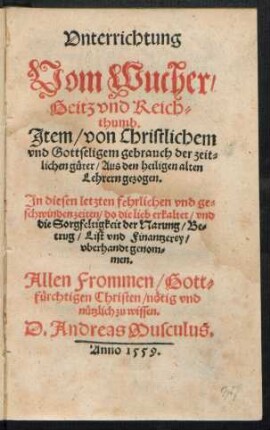 Vnterrichtung
Vom Wucher/
Geitz vnd Reich-
thumb.
Item/von Christlichem
vnd Gottseligem gebrauch der zeit-
lichen güter/Aus den heiligen alten
Lehrern gezogen.
In diesen letzten fehrlichen vnd ge-
schwinden zeiten/do die lieb erkaltet/vnd
die Sorgfeltigkeit der Narung/Be-
trug/List vnd Finantzerey/
vberhandt genom-
men.
Allen Frommen/Gott-
fürchtigen Christen/nötig vnd
nützlich zu wissen.
D. Andreas Musculus.
Anno 1559.